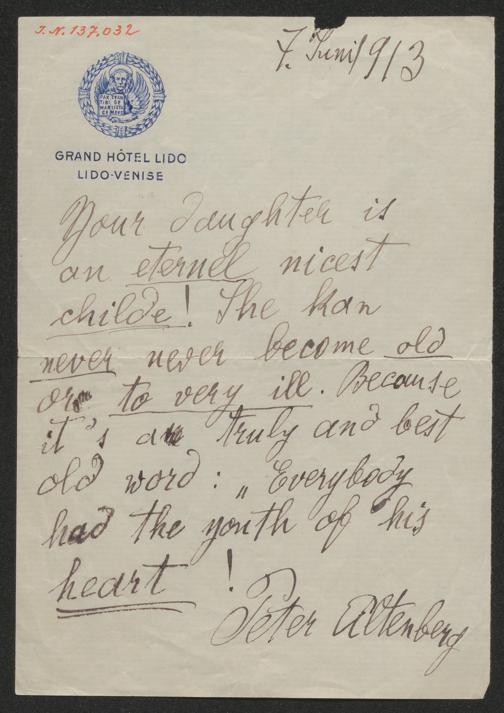 I.N. 137.032
7. Juni 1913
PAX TIBI
MARCE
GRAND HÔTEL LIDO
LIDO-VENISE
Your daughter is
an eternel nicest
childe! She kan
never never become old
or to very ill. Because
it's a truly and best
old word: „Everybody
had the youth of his
heart !
Peter Altenberg